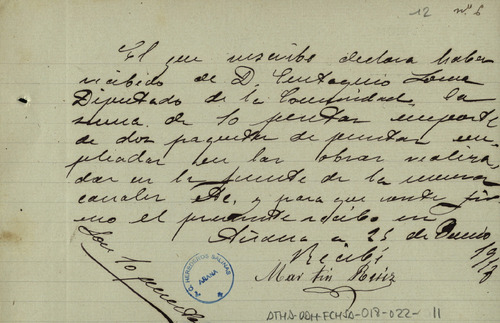 12 nº 6
El que suscribe declara haber
recibido de D. Eustaquio
Diputado de la Comunidad, la
suma de 10 pesetas importe
de dos paquetes de puntas em-
pleadas en las obras realiza
das en la fuente de la nueva
canales &c, y para que conste fir
mo el presente recibo en
Añana a 25 de Enero
19
Recibí
Martin
Son 10 pesetas
HEREDEROS SALINAS
AÑANA
ATHA-DAH-FCHSA-018-022-11